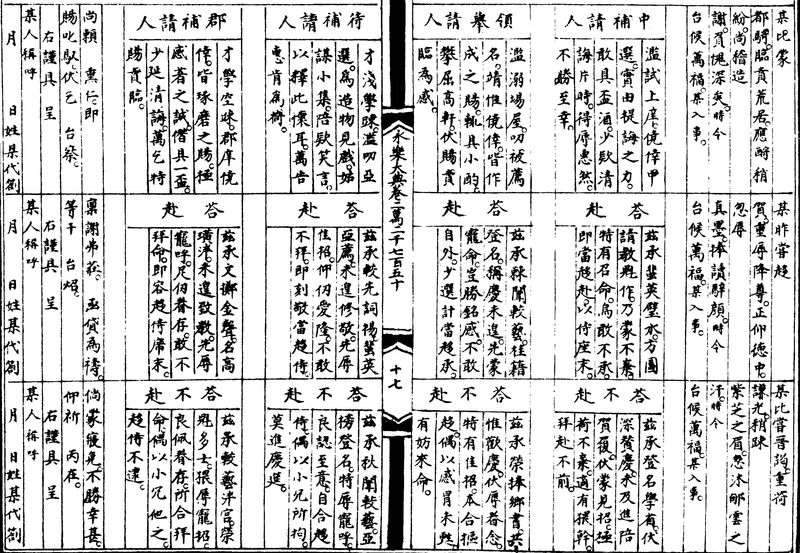 某比蒙
都騎臨貴荒居應酧稍
紛尚稽造
謝賀愧深矣時令
台候萬福某入事
中補請人
濫試上庠僥倖甲
選實由提誨之力
敢具盃酒少欵清
誨片時得辱惠然
不勝至幸
領舉請人
濫溺場屋叨被薦
名靖惟僥倖皆作
成之賜輒具小酌
攀屈高軒伏賜賁
臨為感
某昨嘗趨
賀重辱降尊正仰德中
忽辱
真墨捧讀騂顏時令
台候萬福某入事
答赴
兹承蜚英璧水方圖
請教作乃蒙不棄
特有召命焉敢不承
即當趨赴以侍座末
答赴
兹承棘闈較藝桂籍
登名稱慶未遑先蒙
寵命豈勝銘感不敢
自外少選計當趨承
某比嘗晉謁重荷
謙光稍踈
紫芝之眉忽沐郇雲之
汗時令
台候萬福某入事
答不赴
兹承登名學省伏
深贊慶未及進陪
賀復伏蒙見招極
荷不棄適有猥幹
拜赴不前
答不赴
兹承榮捧鄉書共
惟歡慶伏辱眷念
特有佳招本合振
趨偶以感冒未甦
有妨來命
永樂大典卷二萬二千七百五十
十七
待補請人
才淺學踈濫叨亞
選為造物見戲
謀小集陪欵笑言
以釋此懷耳萬告
惠肯為荷
郡補請人
才學空踈郡庠僥
倖皆琢磨之賜極
感著之誠僭具一盃
少延清誨萬乞特
賜賁臨
尚賴 惠仁即
賜叱馭伏乞 台察
右謹具 呈
某人稱呼
月 日姓某代劄
答赴
兹承較先詞禓蜚英
亞薦未遑修敬先辱
佳招仰仞愛隆不敢
不拜即刻敬當趨侍
答赴
兹承文擲金聲名高
璜泮未遑致敬先辱
寵呼足仞眷存敢不
拜命即容趨侍席末
稟謝弗莊亟貸為禱
等干 台炤
右謹具 呈
某人稱呼
月 日姓某代劄
答不赴
兹承秋闈較藝亞
榜登名特辱寵呼
良認至意自合趨
侍偶以小兒所拘
莫進慶
答不赴
兹承較藝泮宮榮
魁多士猥辱寵招
良佩眷存所合拜
命偶以小冗他之
趨侍不逮
倘蒙寢免不勝幸甚
仰祈 丙在
右謹具 呈
某人稱呼
月 日姓某代劄